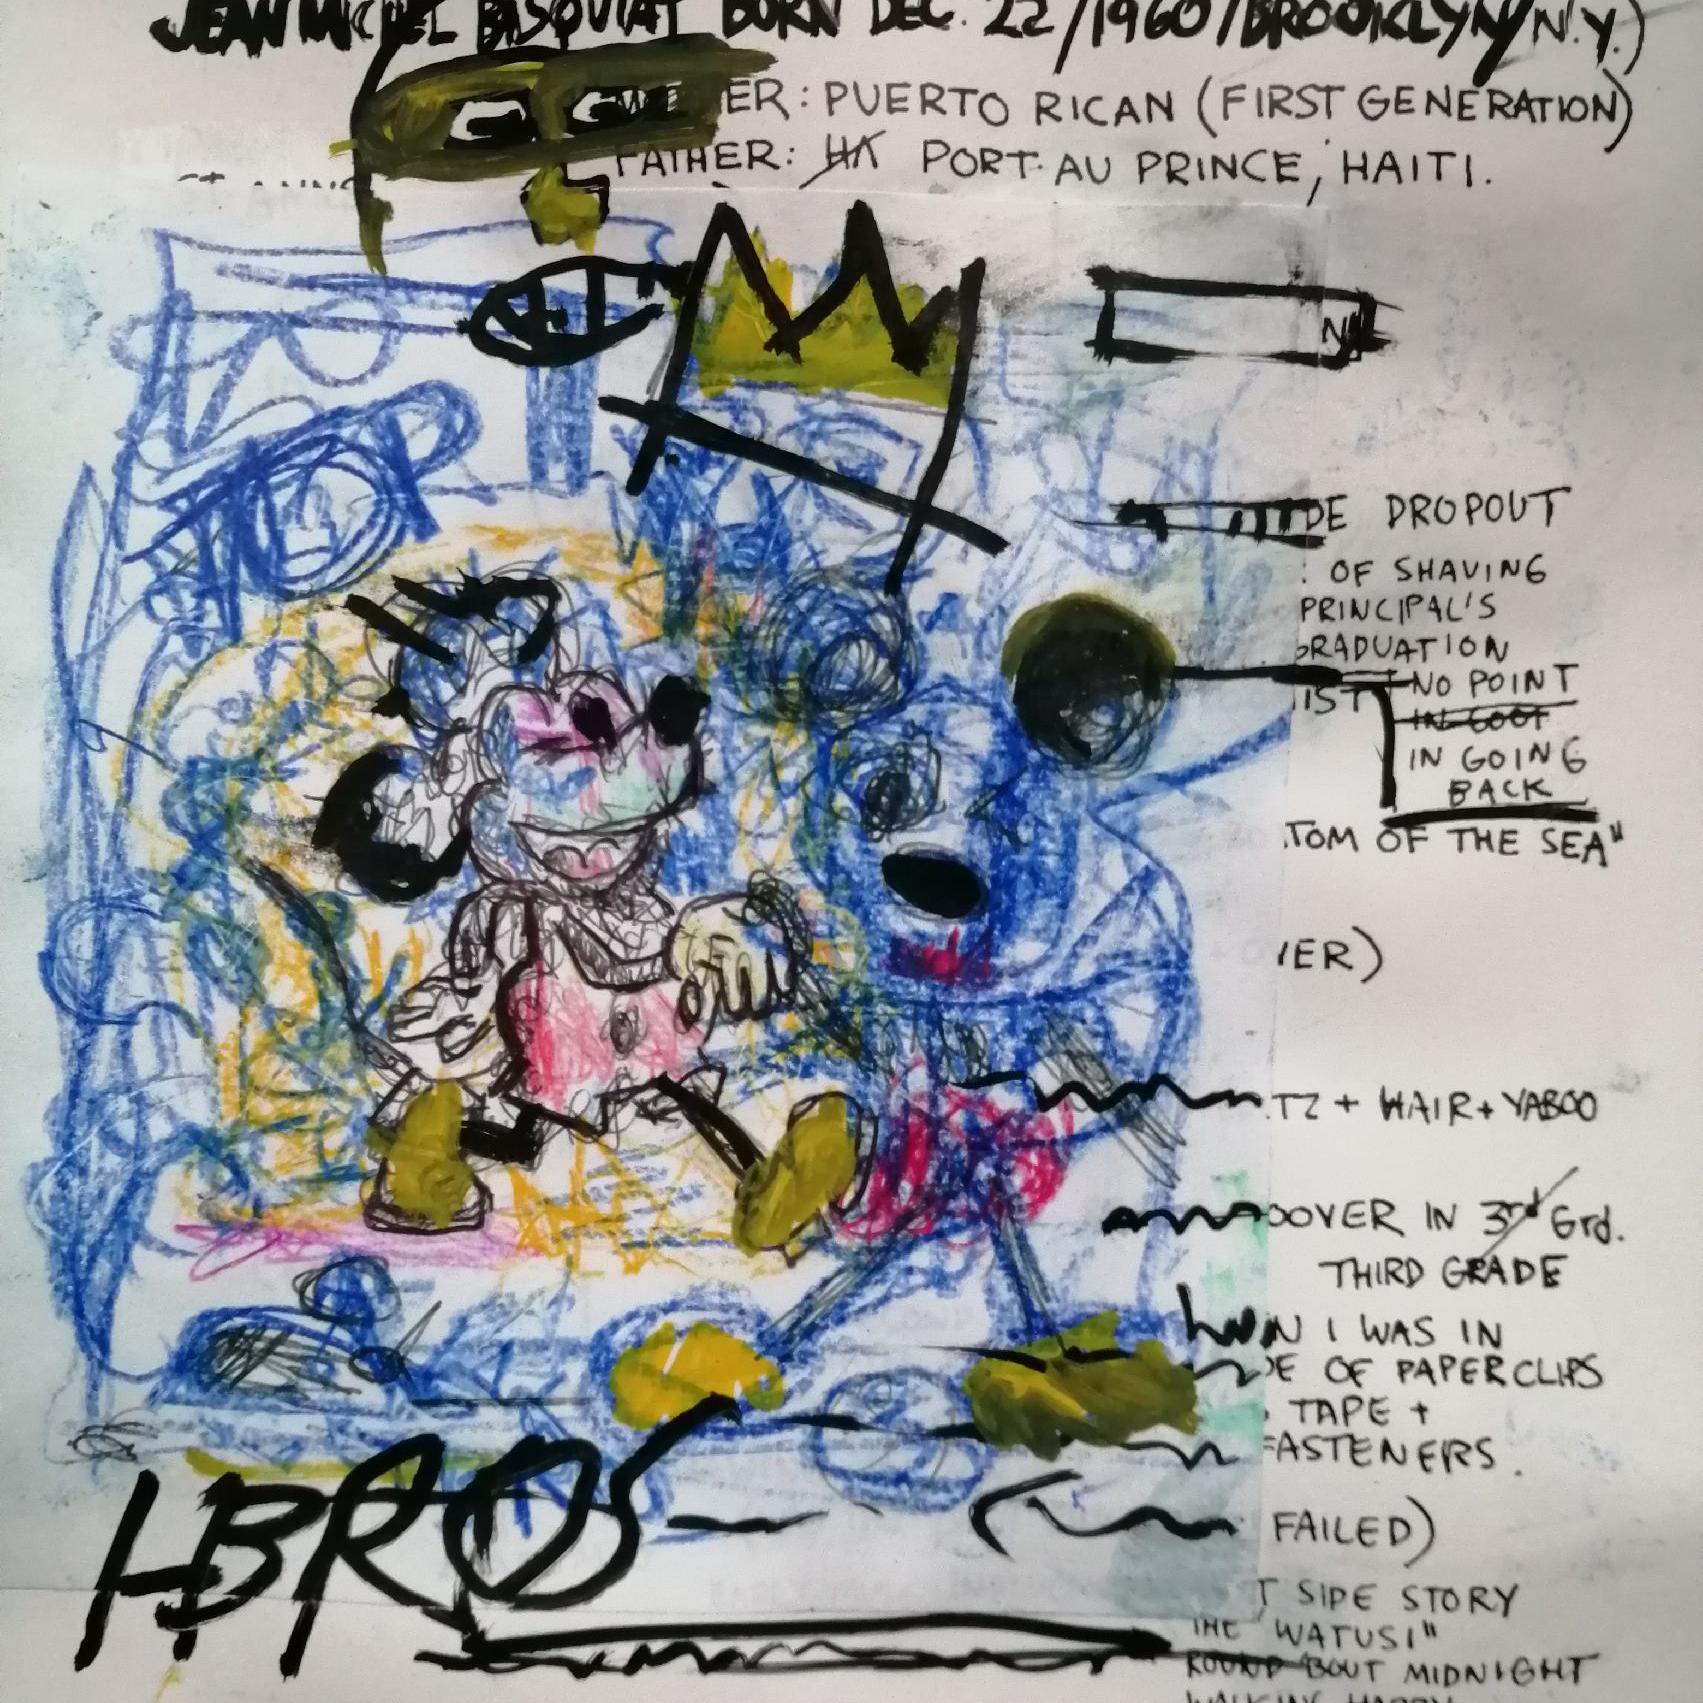 JEAN MICHEL BASQUIAT BORN DEC. 22/1960/BROOKLYN/N.Y.)
ER: PUERTO RICAN (FIRST GENERATION)
FATHER: HA PORT-AU PRINCE, HAITI.
DE DROPOUT
OF SHAVING
PRINCIPAL'S
GRADUATION
IST NO POINT
IN GOOI
IN GOING
BACK
TOM OF THE SEA"
VER)
TZ + HAIR + YABOO
OOVER IN 3rd Grd.
THIRD GRADE
N I WAS IN
DE OF PAPERCLIPS
TAPE +
FASTENERS.
HBROS
FAILED)
T SIDE STORY
THE "WATUSI"
ROUND 'BOUT MIDNIGHT
WALKING HARRY